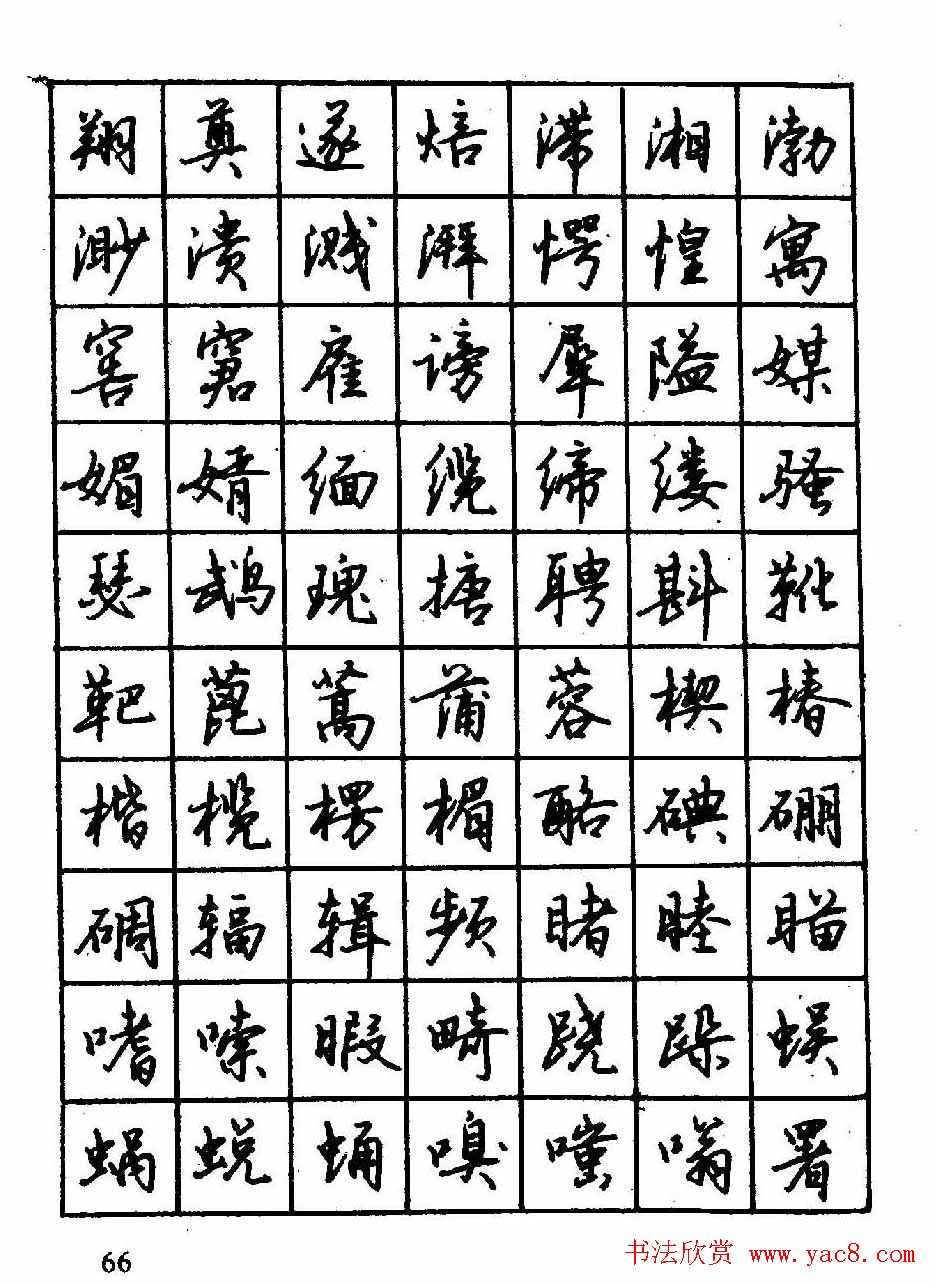 翔奠遂焙滞湘渤
渺溃溅湃愕惶寓
窖窘雇谤犀隘媒
媚婿缅缆缔缕骚
瑟鹉瑰搪聘斟靴
靶蓖蒿蒲蓉楔椿
楷榄楞楣酪碘硼
碉辐辑频睹睦瞄
嗜嗦暇畸跷跺蜈
蜗蜕蛹嗅嗤嗡署
66
书法欣赏 www.yac8.com